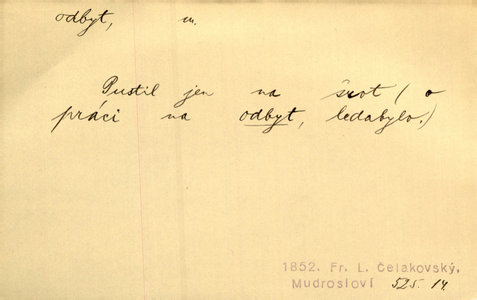 odbyt, m.
Pustil jen na šrot (o
práci na odbyt, ledabylo.)
1852. Fr. L. Čelakovský,
Mudrosloví 525. 14.